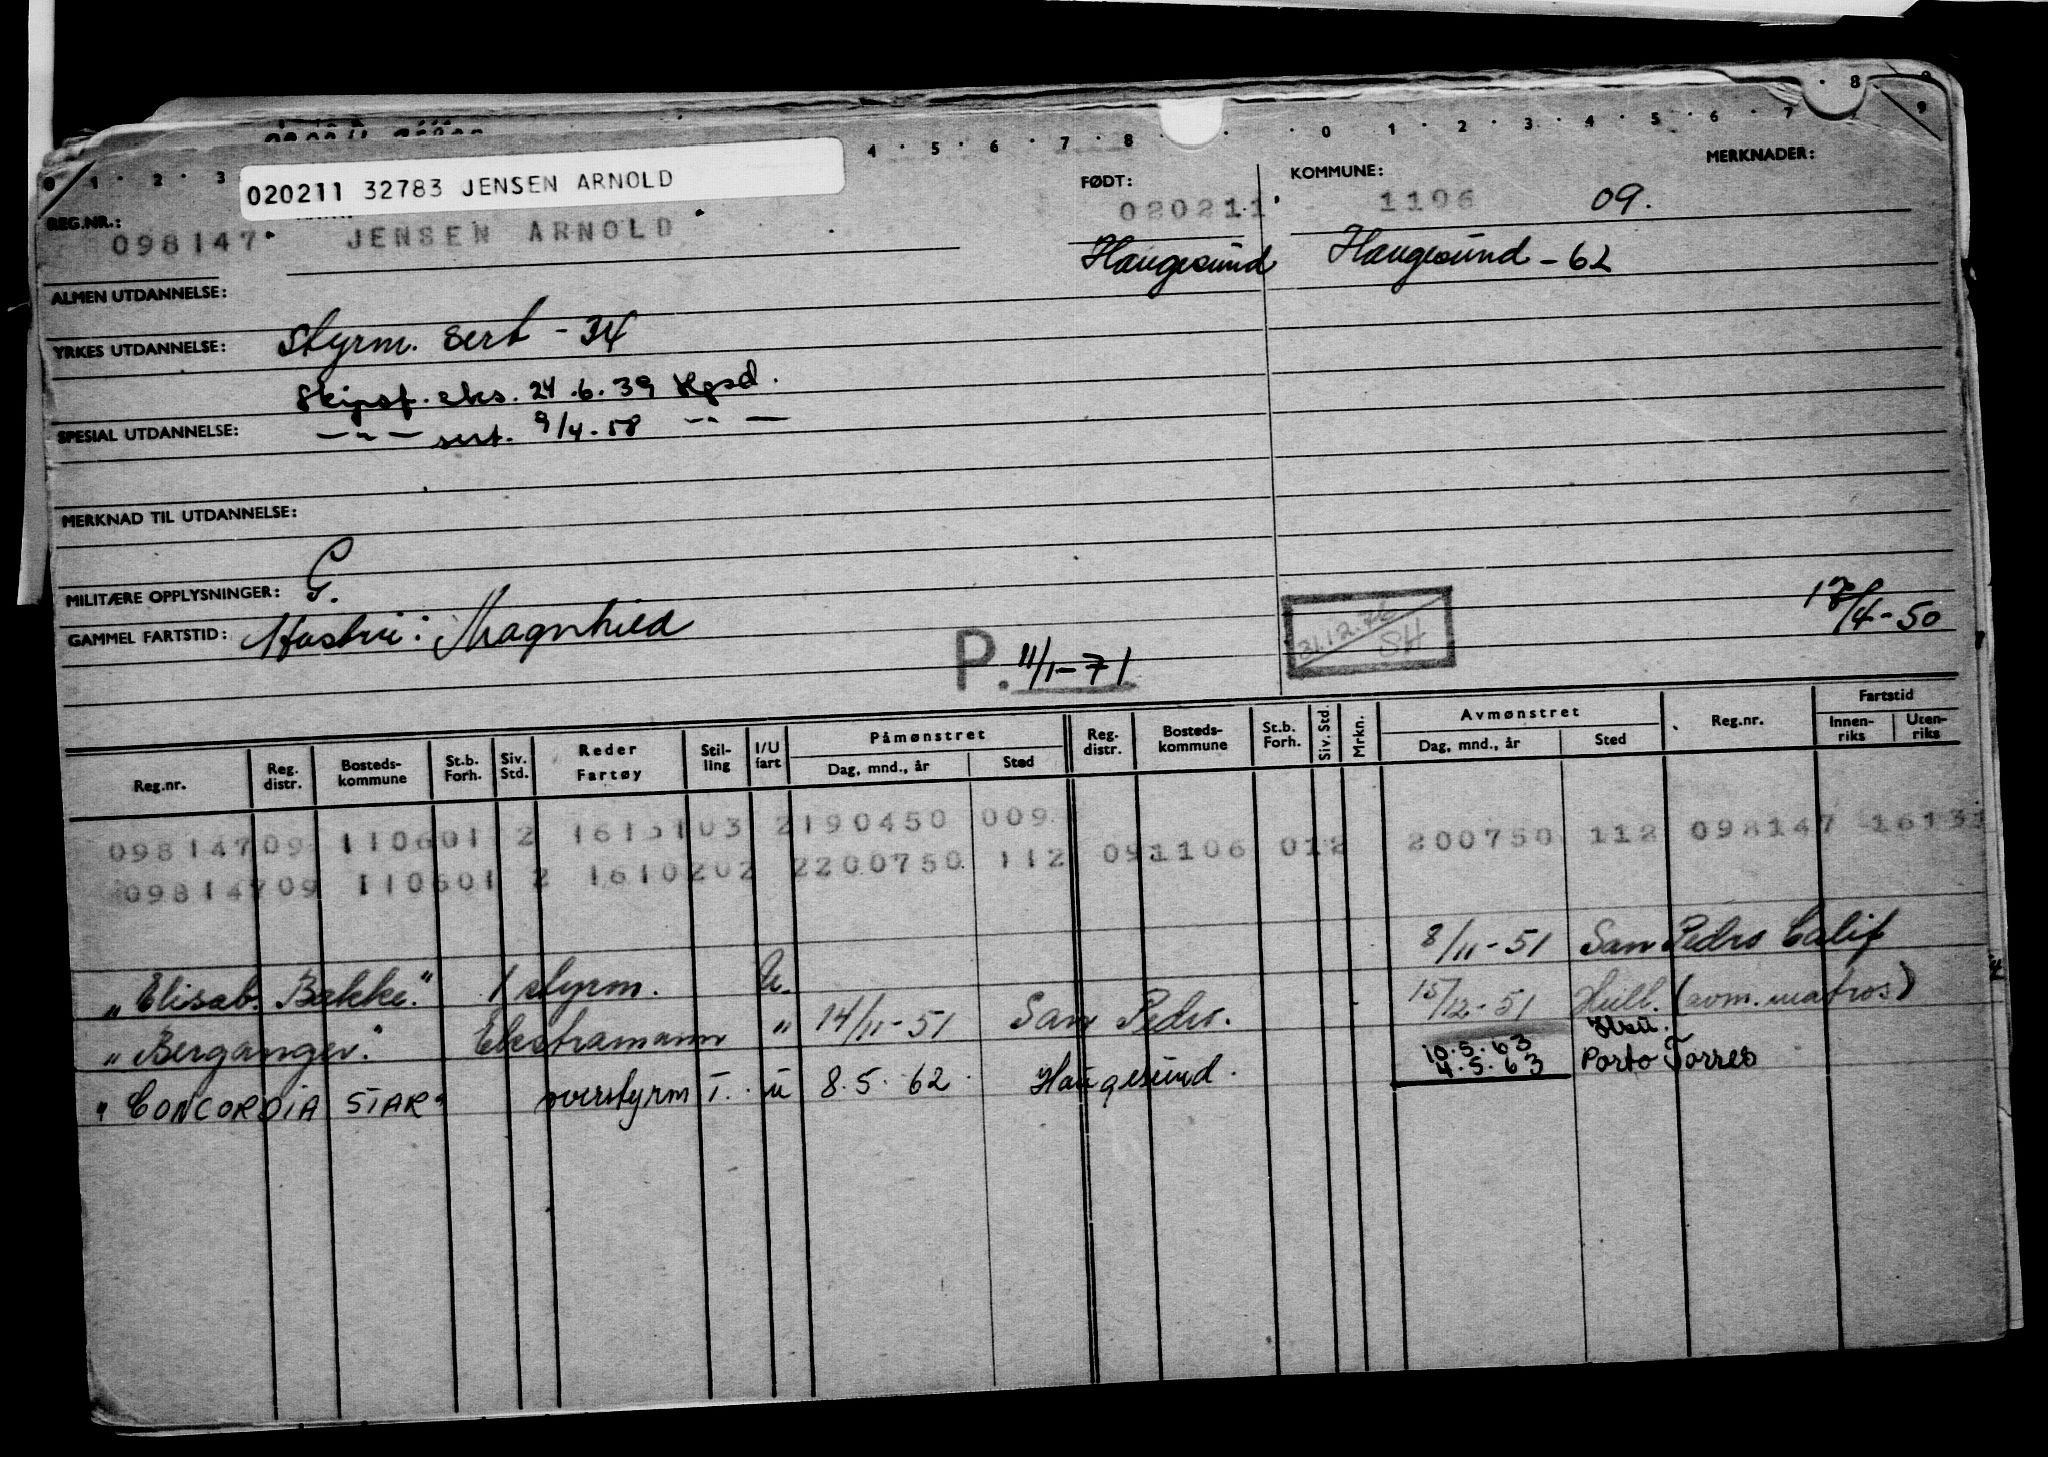 8 9
0 1 2 3 4 5 6 7 8 0 1 2 3 4 5 6 7 9
020211 32783 JENSEN ARNOLD
FØDT: KOMMUNE: MERKNADER:
REG.NR.: 098147 JENSEN ARNOLD 020211 1106 09.
Haugesund Haugesund - 62
ALMEN UTDANNELSE:
YRKES UTDANNELSE: Styrm. sert - 34
Skipsf. eks. 24.6.39 Hgsd.
SPESIAL UTDANNELSE: — " — sert. 9/4-58 — " —
MERKNAD TIL UTDANNELSE:
MILITÆRE OPPLYSNINGER: G.
GAMMEL FARTSTID: Hustru: Magnhild
P. 11/1-71
31.12.76 SH
/4-50
Reg.nr. Reg. distr. Bosteds-kommune St.b. Forh. Siv. Std. Reder Fartøy Stil-ling I/U fart Påmønstret Dag, mnd., år Sted Reg. distr. Bosteds-kommune St.b. Forh. Siv. Std. Mrkn. Avmønstret Dag, mnd., år Sted Reg.nr. Fartstid Innen-riks Uten-riks
09814709 110601 2 1615103 2190450 009 091106 012 200750 112 098147 16131
09814709 110601 2 1610202 2200750 112
"Elisab. Bakke." 1 styrm. U. 8/11-51 San Pedro Calif
"Berganger." Ekstramann " 14/11-51 San Pedro. 15/12-51 Hull. (avm. matros)
10.5.63
"CONCORDIA STAR" overstyrm I. u 8.5.62 Haugesund. 4.5.63 Porto Torres